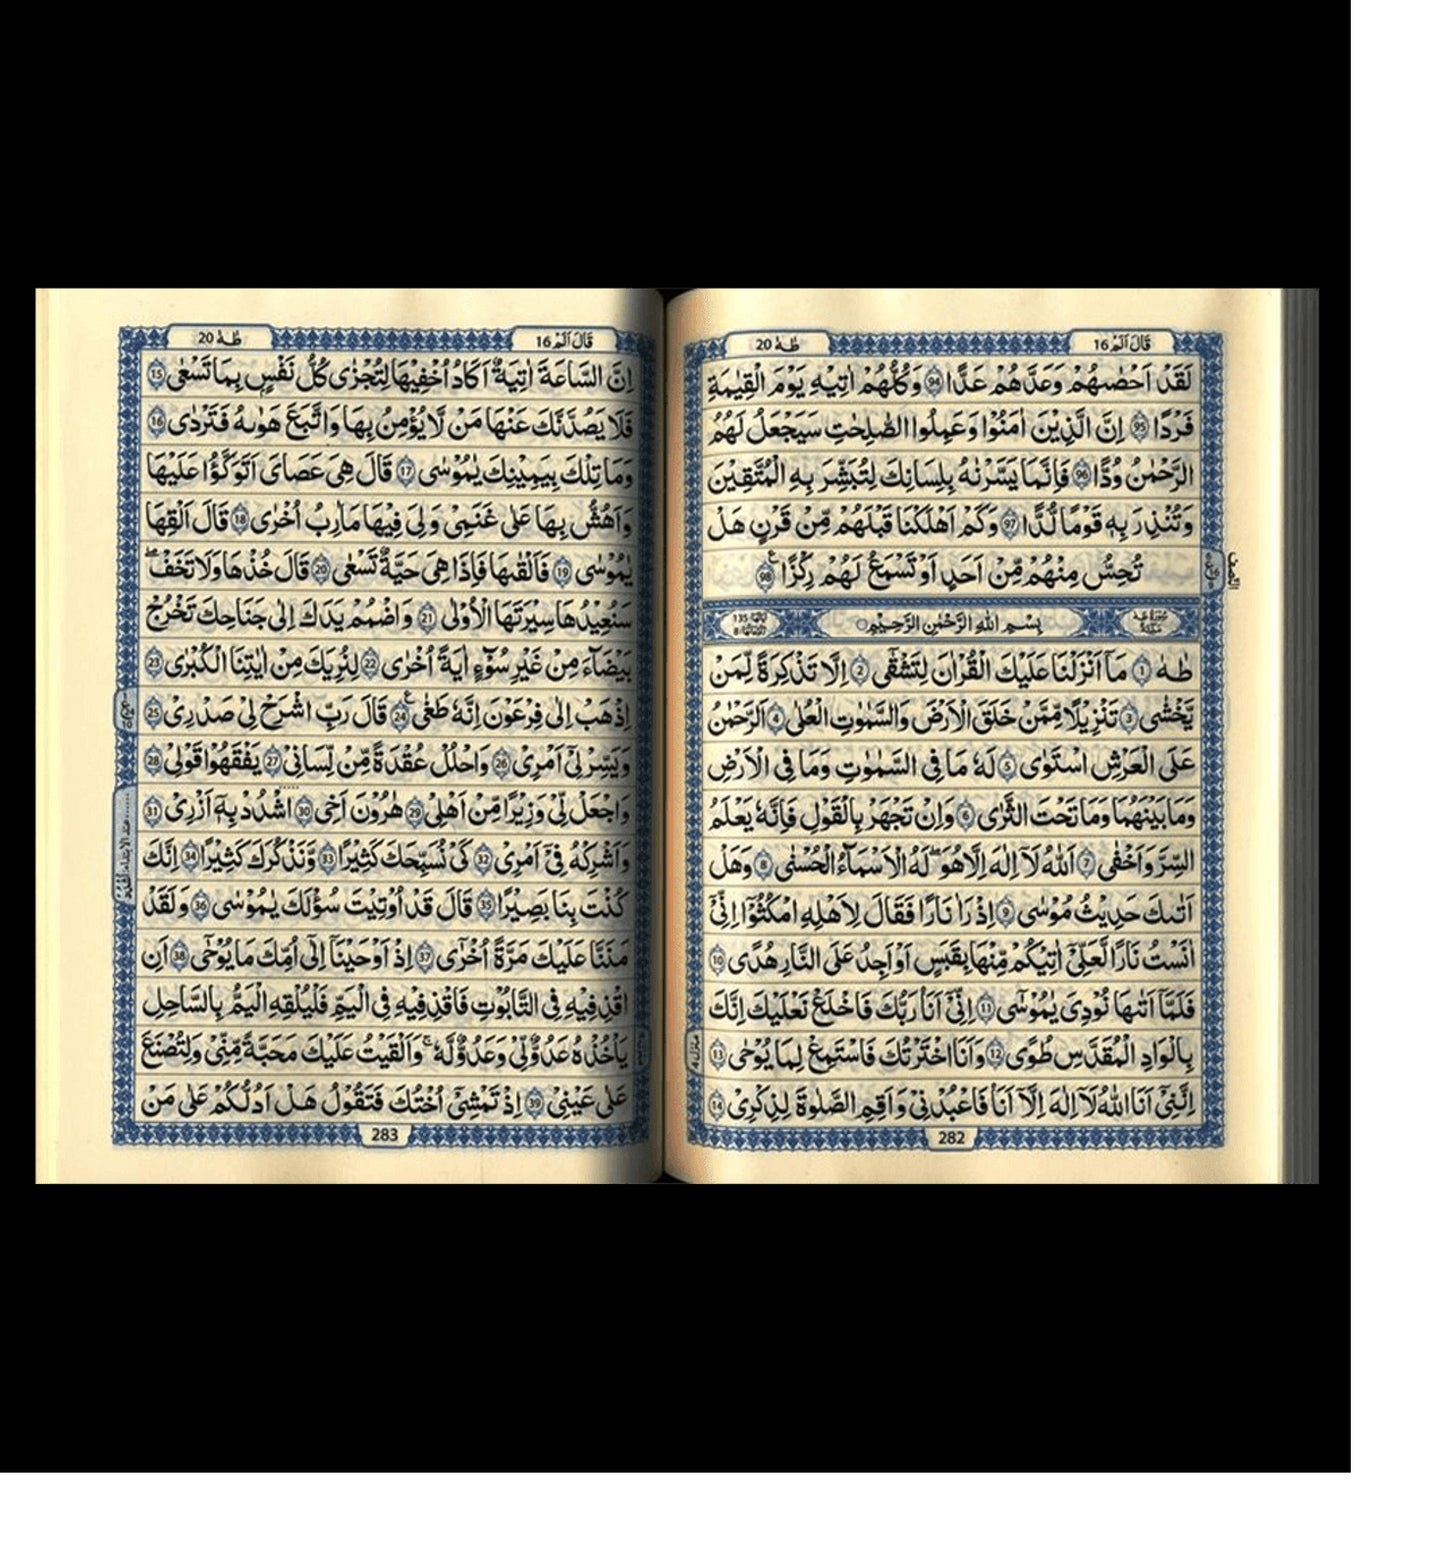 طٰهٰ 20
قَالَ اَلَمْ 16
لَقَدْ اَحْصٰىهُمْ وَعَدَّهُمْ عَدًّا 94 وَكُلُّهُمْ اٰتِيْهِ يَوْمَ الْقِيٰمَةِ
فَرْدًا 95 اِنَّ الَّذِيْنَ اٰمَنُوْا وَعَمِلُوا الصّٰلِحٰتِ سَيَجْعَلُ لَهُمُ
الرَّحْمٰنُ وُدًّا 96 فَاِنَّمَا يَسَّرْنٰهُ بِلِسَانِكَ لِتُبَشِّرَ بِهِ الْمُتَّقِيْنَ
وَتُنْذِرَ بِهٖ قَوْمًا لُّدًّا 97 وَكَمْ اَهْلَكْنَا قَبْلَهُمْ مِّنْ قَرْنٍ هَلْ
تُحِسُّ مِنْهُمْ مِّنْ اَحَدٍ اَوْ تَسْمَعُ لَهُمْ رِكْزًا 98
بِسْمِ اللهِ الرَّحْمٰنِ الرَّحِيْمِ
طٰهٰ 1 مَاۤ اَنْزَلْنَا عَلَيْكَ الْقُرْاٰنَ لِتَشْقٰٓى 2 اِلَّا تَذْكِرَةً لِّمَنْ
يَّخْشٰى 3 تَنْزِيْلًا مِّمَّنْ خَلَقَ الْاَرْضَ وَالسَّمٰوٰتِ الْعُلٰى 4 اَلرَّحْمٰنُ
عَلَى الْعَرْشِ اسْتَوٰى 5 لَهٗ مَا فِى السَّمٰوٰتِ وَمَا فِى الْاَرْضِ
وَمَا بَيْنَهُمَا وَمَا تَحْتَ الثَّرٰى 6 وَاِنْ تَجْهَرْ بِالْقَوْلِ فَاِنَّهٗ يَعْلَمُ
السِّرَّ وَاَخْفٰى 7 اَللهُ لَاۤ اِلٰهَ اِلَّا هُوَ ؕ لَهُ الْاَسْمَآءُ الْحُسْنٰى 8 وَهَلْ
اَتٰىكَ حَدِيْثُ مُوْسٰى 9 اِذْ رَاٰ نَارًا فَقَالَ لِاَهْلِهِ امْكُثُوْۤا اِنِّىْۤ
اٰنَسْتُ نَارًا لَّعَلِّىْۤ اٰتِيْكُمْ مِّنْهَا بِقَبَسٍ اَوْ اَجِدُ عَلَى النَّارِ هُدًى 10
فَلَمَّاۤ اَتٰىهَا نُوْدِىَ يٰمُوْسٰى 11 اِنِّىْۤ اَنَا رَبُّكَ فَاخْلَعْ نَعْلَيْكَ اِنَّكَ
بِالْوَادِ الْمُقَدَّسِ طُوًى 12 وَاَنَا اخْتَرْتُكَ فَاسْتَمِعْ لِمَا يُوْحٰى 13
اِنَّنِىْۤ اَنَا اللهُ لَاۤ اِلٰهَ اِلَّاۤ اَنَا فَاعْبُدْنِىْ وَاَقِمِ الصَّلٰوةَ لِذِكْرِىْ 14
282
طٰهٰ 20
قَالَ اَلَمْ 16
اِنَّ السَّاعَةَ اٰتِيَةٌ اَكَادُ اُخْفِيْهَا لِتُجْزٰى كُلُّ نَفْسٍ بِمَا تَسْعٰى 15
فَلَا يَصُدَّنَّكَ عَنْهَا مَنْ لَّا يُؤْمِنُ بِهَا وَاتَّبَعَ هَوٰىهُ فَتَرْدٰى 16
وَمَا تِلْكَ بِيَمِيْنِكَ يٰمُوْسٰى 17 قَالَ هِىَ عَصَاىَ اَتَوَكَّؤُا عَلَيْهَا
وَاَهُشُّ بِهَا عَلٰى غَنَمِىْ وَلِىَ فِيْهَا مَاٰرِبُ اُخْرٰى 18 قَالَ اَلْقِهَا
يٰمُوْسٰى 19 فَاَلْقٰىهَا فَاِذَا هِىَ حَيَّةٌ تَسْعٰى 20 قَالَ خُذْهَا وَلَا تَخَفْ
سَنُعِيْدُهَا سِيْرَتَهَا الْاُوْلٰى 21 وَاضْمُمْ يَدَكَ اِلٰى جَنَاحِكَ تَخْرُجْ
بَيْضَآءَ مِنْ غَيْرِ سُوْٓءٍ اٰيَةً اُخْرٰى 22 لِنُرِيَكَ مِنْ اٰيٰتِنَا الْكُبْرٰى 23
اِذْهَبْ اِلٰى فِرْعَوْنَ اِنَّهٗ طَغٰى 24 قَالَ رَبِّ اشْرَحْ لِىْ صَدْرِىْ 25
وَيَسِّرْ لِىْۤ اَمْرِىْ 26 وَاحْلُلْ عُقْدَةً مِّنْ لِّسَانِىْ 27 يَفْقَهُوْا قَوْلِىْ 28
وَاجْعَلْ لِّىْ وَزِيْرًا مِّنْ اَهْلِىْ 29 هٰرُوْنَ اَخِى 30 اشْدُدْ بِهٖۤ اَزْرِىْ 31
وَاَشْرِكْهُ فِىْۤ اَمْرِىْ 32 كَىْ نُسَبِّحَكَ كَثِيْرًا 33 وَّنَذْكُرَكَ كَثِيْرًا 34 اِنَّكَ
كُنْتَ بِنَا بَصِيْرًا 35 قَالَ قَدْ اُوْتِيْتَ سُؤْلَكَ يٰمُوْسٰى 36 وَلَقَدْ
مَنَنَّا عَلَيْكَ مَرَّةً اُخْرٰٓى 37 اِذْ اَوْحَيْنَاۤ اِلٰٓى اُمِّكَ مَا يُوْحٰٓى 38 اَنِ
اقْذِفِيْهِ فِى التَّابُوْتِ فَاقْذِفِيْهِ فِى الْيَمِّ فَلْيُلْقِهِ الْيَمُّ بِالسَّاحِلِ
يَاْخُذْهُ عَدُوٌّ لِّىْ وَعَدُوٌّ لَّهٗ وَاَلْقَيْتُ عَلَيْكَ مَحَبَّةً مِّنِّىْ وَلِتُصْنَعَ
عَلٰى عَيْنِىْ 39 اِذْ تَمْشِىْۤ اُخْتُكَ فَتَقُوْلُ هَلْ اَدُلُّكُمْ عَلٰى مَنْ
283